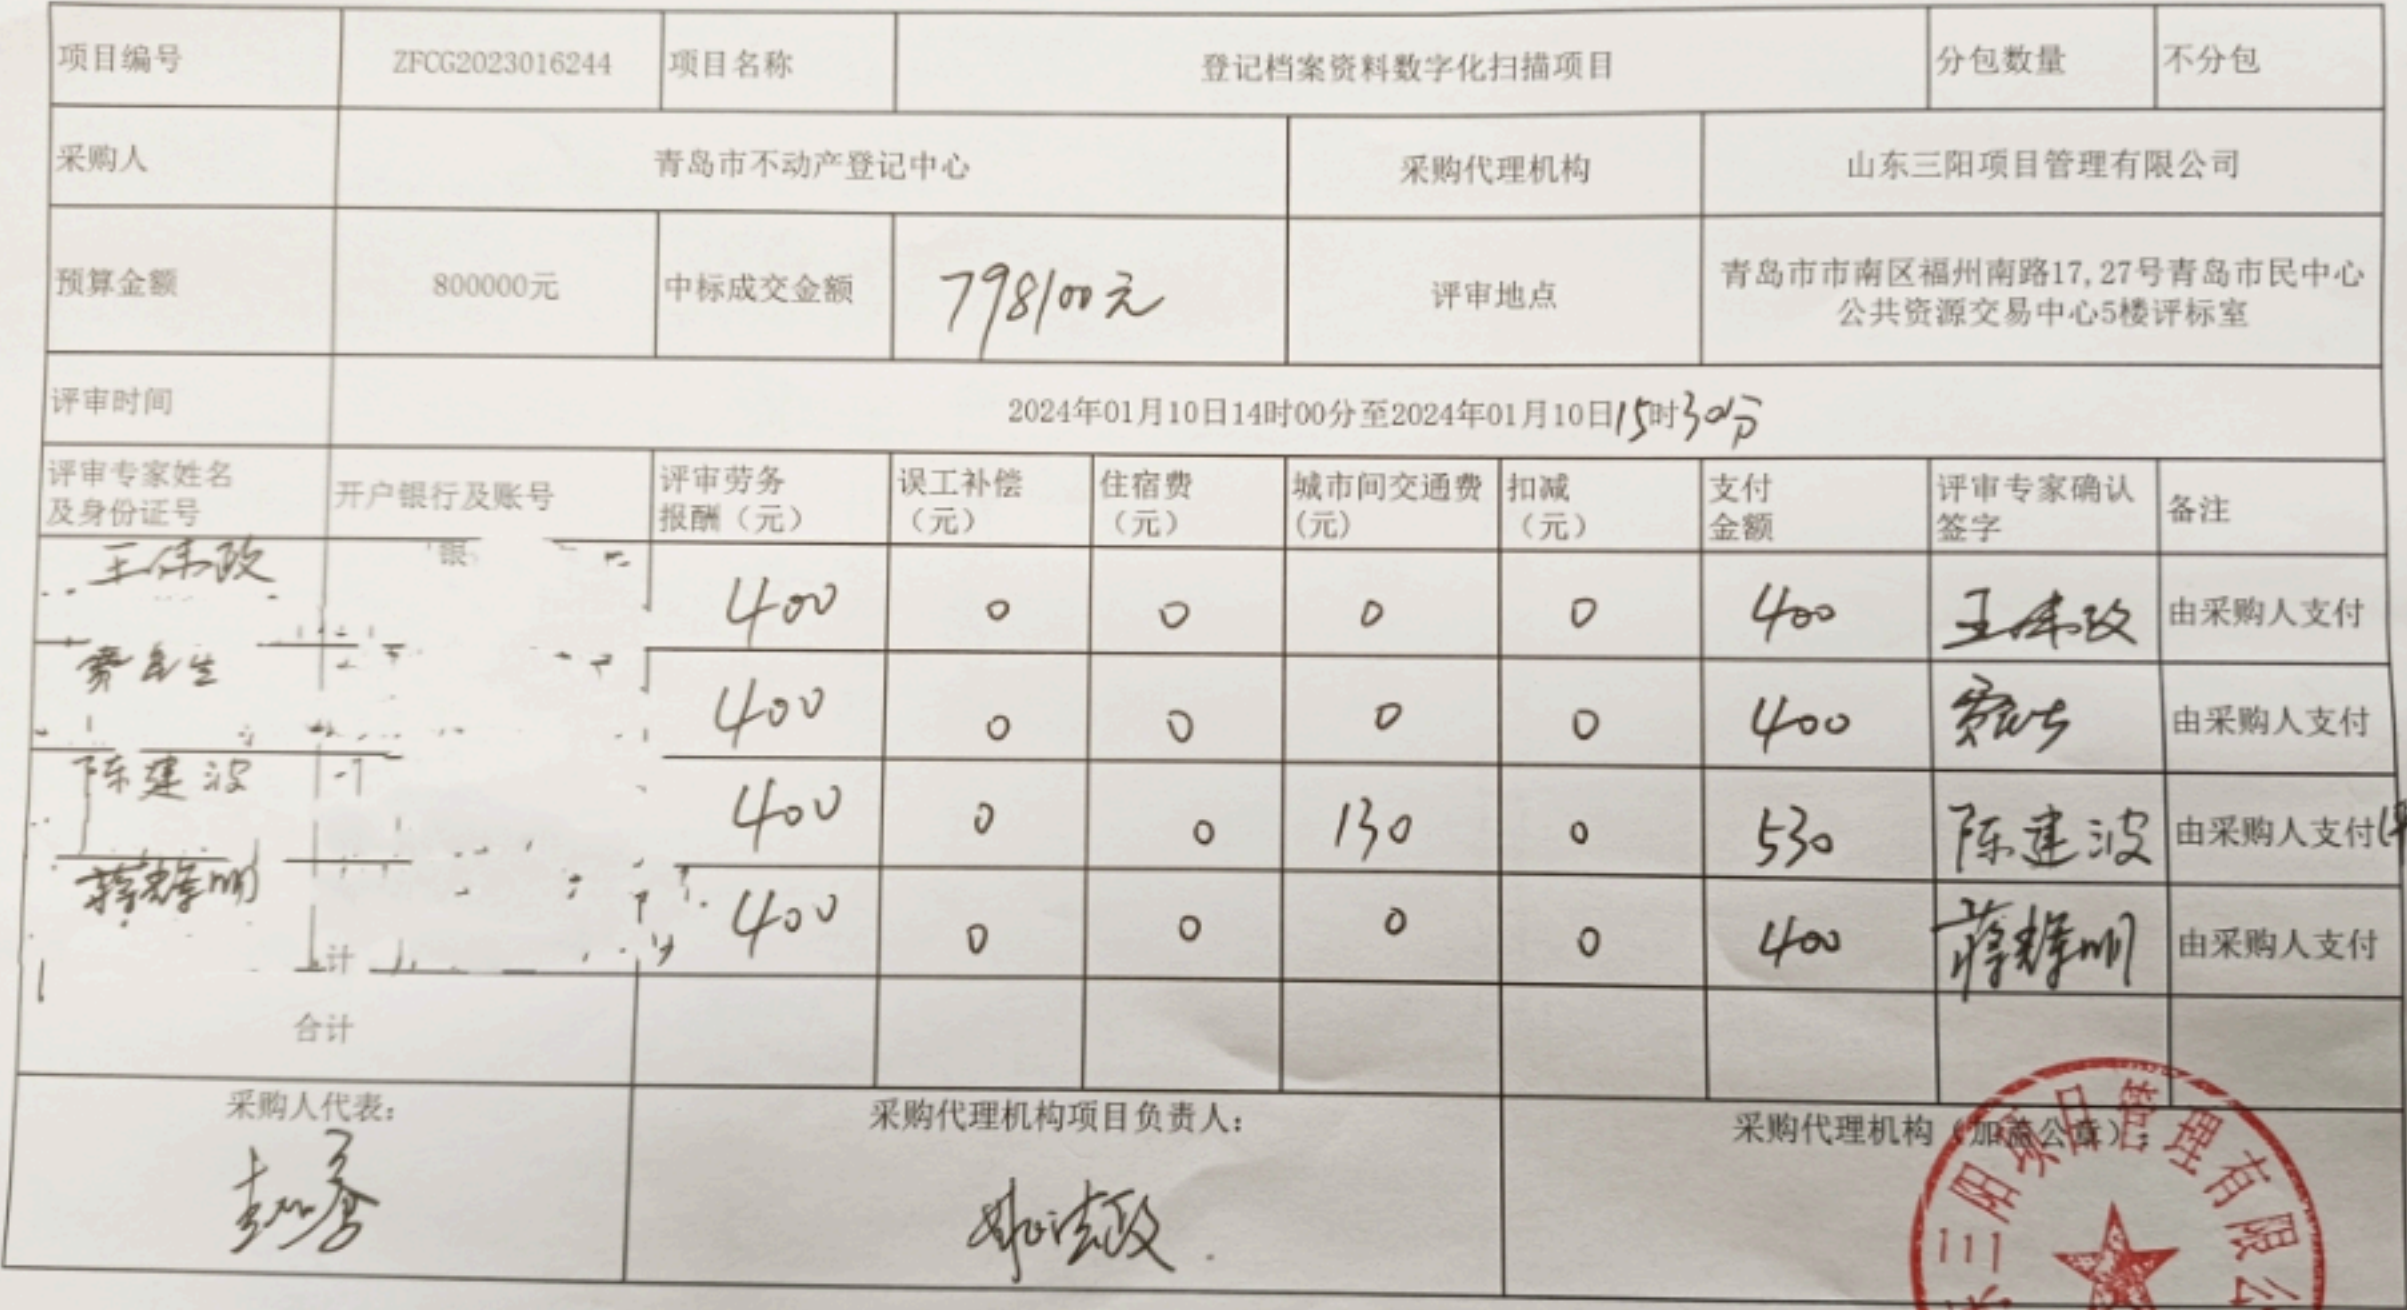 项目编号 ZFCG2023016244 项目名称 登记档案资料数字化扫描项目 分包数量 不分包
采购人 青岛市不动产登记中心 采购代理机构 山东三阳项目管理有限公司
预算金额 800000元 中标成交金额 798100元 评审地点 青岛市市南区福州南路17,27号青岛市民中心
公共资源交易中心5楼评标室
评审时间 2024年01月10日14时00分至2024年01月10日15时30分
评审专家姓名
及身份证号 开户银行及账号 评审劳务
报酬（元） 误工补偿
（元） 住宿费
（元） 城市间交通费
(元) 扣减
（元） 支付
金额 评审专家确认
签字 备注
王伟政 银 400 0 0 0 0 400 王伟政 由采购人支付
费 生 400 0 0 0 0 400 由采购人支付
陈建波 400 0 0 130 0 530 陈建波 由采购人支付
蒋辉明 400 0 0 0 0 400 蒋辉明 由采购人支付
计
合计
采购人代表： 采购代理机构项目负责人： 采购代理机构（加盖公章）：
三阳项目管理有限公